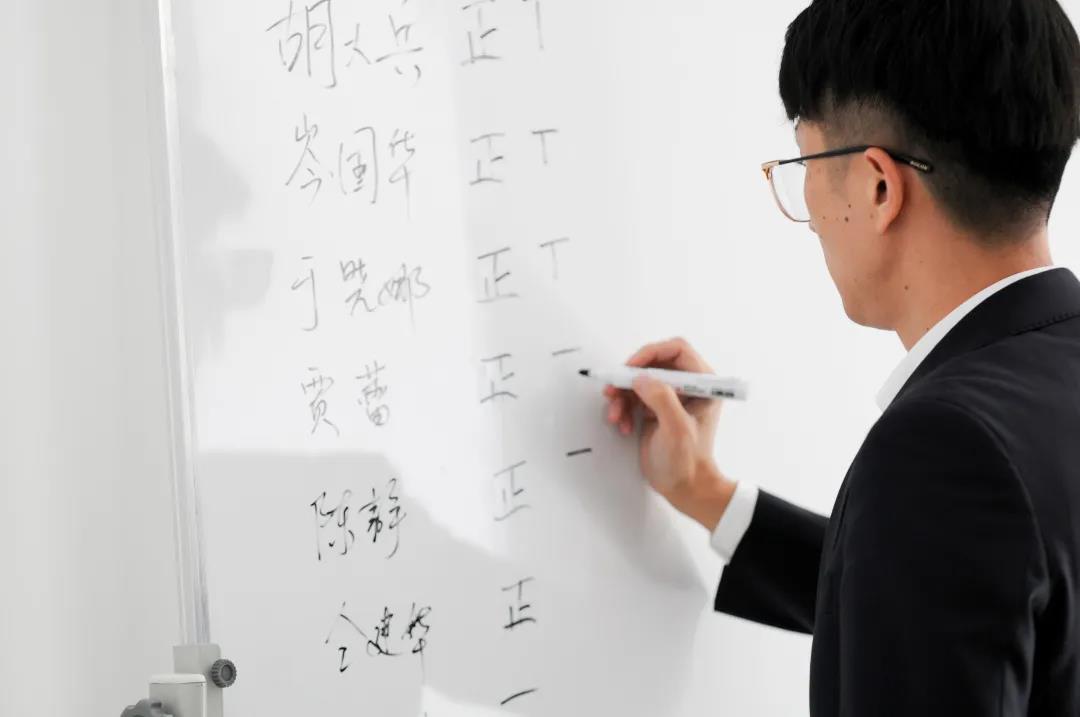 胡大兵 正 丅
岑国华 正 丅
于晓娜 正 丅
贾蕾 正 一
陈 正 一
仝建华 正
一